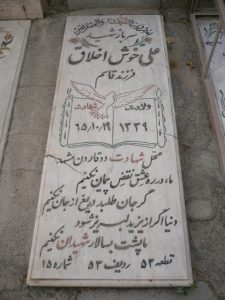 سرباز شهید
علی خوش اخلاق
فرزند قاسم
ولادت شهادت
۱۳۳۹ ۱۵/۱۰/۱۹
محل شهادت دوقارون شهاد
ما، در ره عشق نقض پیمان نکنیم
گر جان طلبد دریغ از جان نکنیم
دنیا اگر از یزید لبریز شود
ما پشت به سالار شهیدان نکنیم
قطعه ۵۳ ردیف ۵۳ شماره ۱۵